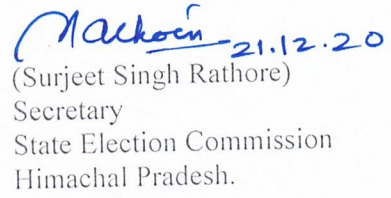 21.12.20
(Surjeet Singh Rathore)
Secretary
State Election Commission
Himachal Pradesh.